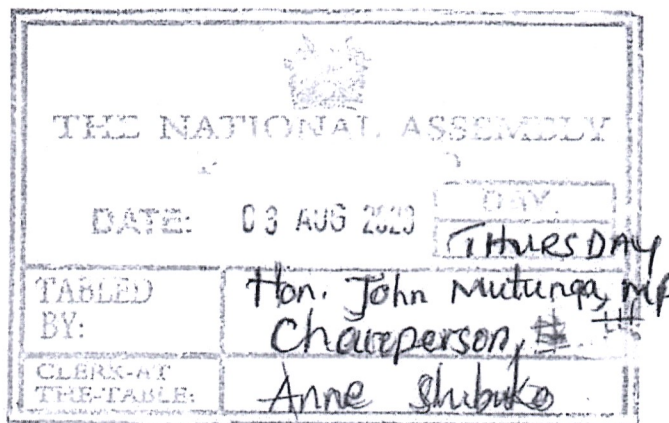 THE NATIONAL ASSEMBLY
DATE: 03 AUG 2023 DAY.
THURSDAY
TABLED BY: Hon. John Mutunga, MP
Chairperson,
CLERK-AT THE-TABLE: Anne Shibuko